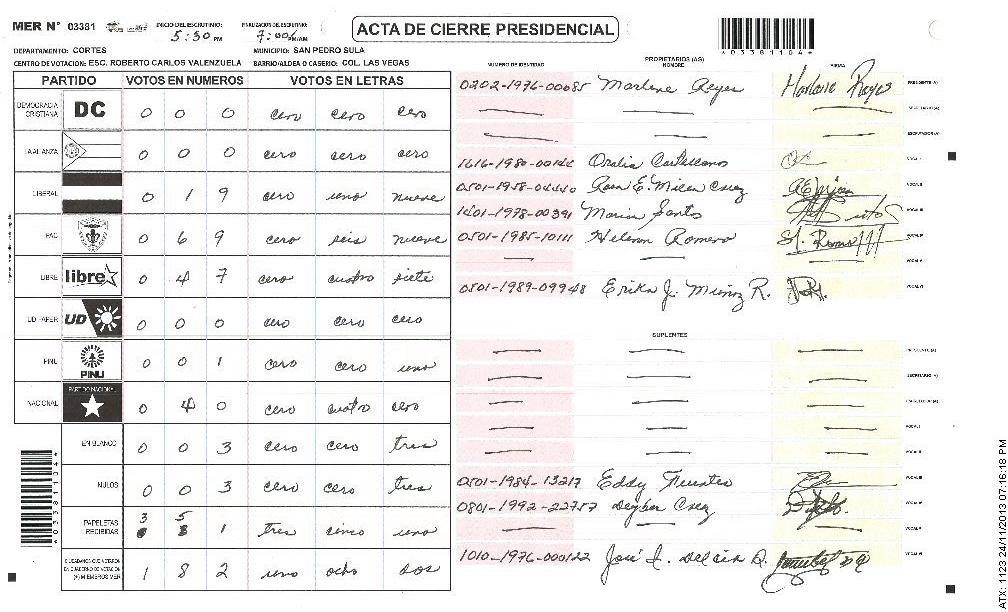 MER N° 03381 INICIO DEL ESCRUTINIO: 5:30 PM FINALIZACION DEL ESCRUTINIO: 7:00 PM/AM
ACTA DE CIERRE PRESIDENCIAL
03381104
DEPARTAMENTO: CORTES MUNICIPIO: SAN PEDRO SULA
CENTRO DE VOTACION: ESC. ROBERTO CARLOS VALENZUELA BARRIO/ALDEA O CASERIO: COL. LAS VEGAS
PARTIDO VOTOS EN NUMEROS VOTOS EN LETRAS
DEMOCRACIA CRISTIANA DC 0 0 0 cero cero cero
LA ALIANZA 0 0 0 cero cero cero
LIBERAL 0 1 9 cero uno nueve
PAC 0 6 9 cero seis nueve
LIBRE libre 0 4 7 cero cuatro siete
UD FAPER UD 0 0 0 cero cero cero
PINU PINU 0 0 1 cero cero uno
NACIONAL PARTIDO NACIONAL 0 4 0 cero cuatro cero
EN BLANCO 0 0 3 cero cero tres
NULOS 0 0 3 cero cero tres
PAPELETAS RECIBIDAS 3 5 1 tres cinco uno
CIUDADANOS QUE VOTARON
EN CUADERNO DE VOTACION
(+) MIEMBROS MER 1 8 2 uno ocho dos
03381104
NUMERO DE IDENTIDAD PROPIETARIOS (AS) NOMBRE FIRMA
0202-1976-00085 Marlene Reyes Marlene Reyes PRESIDENTE (A)
SECRETARIO (A)
ESCRUTADOR (A)
1616-1980-00146 Oralia Castellano VOCAL I
0501-1958-04440 VOCAL II
1401-1978-00391 Maria Santos VOCAL III
0501-1985-10111 Helenn Romero VOCAL IV
VOCAL V
0801-1989-09948 Erika J. Muñoz R. VOCAL VI
SUPLENTES
PRESIDENTE (A)
SECRETARIO (A)
ESCRUTADOR (A)
VOCAL I
VOCAL II
0501-1984-13217 Eddy Fuentes VOCAL III
0801-1992-22757 VOCAL IV
VOCAL V
1010-1976-000122 José VOCAL VI
ATX: 1123 24/11/2013 07:16:18 PM